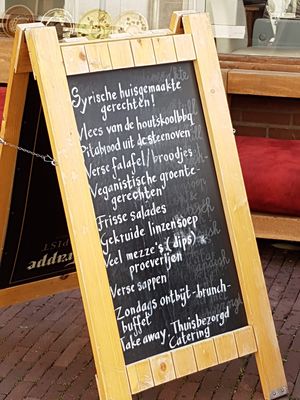 Syrische huisgemaakte
gerechten!
Vlees van de houtskoolbbq
Pitabrood uit de steenoven
Verse falafel/broodjes
Veganistische groente-
gerechten
Frisse salades
Gekruide linzensoep
Veel mezze's (dips) &
proeverijen
Verse sappen
Zondags ontbijt-brunch-
buffet
Take away Thuisbezorgd
Catering
Trappe
TRAPPIST